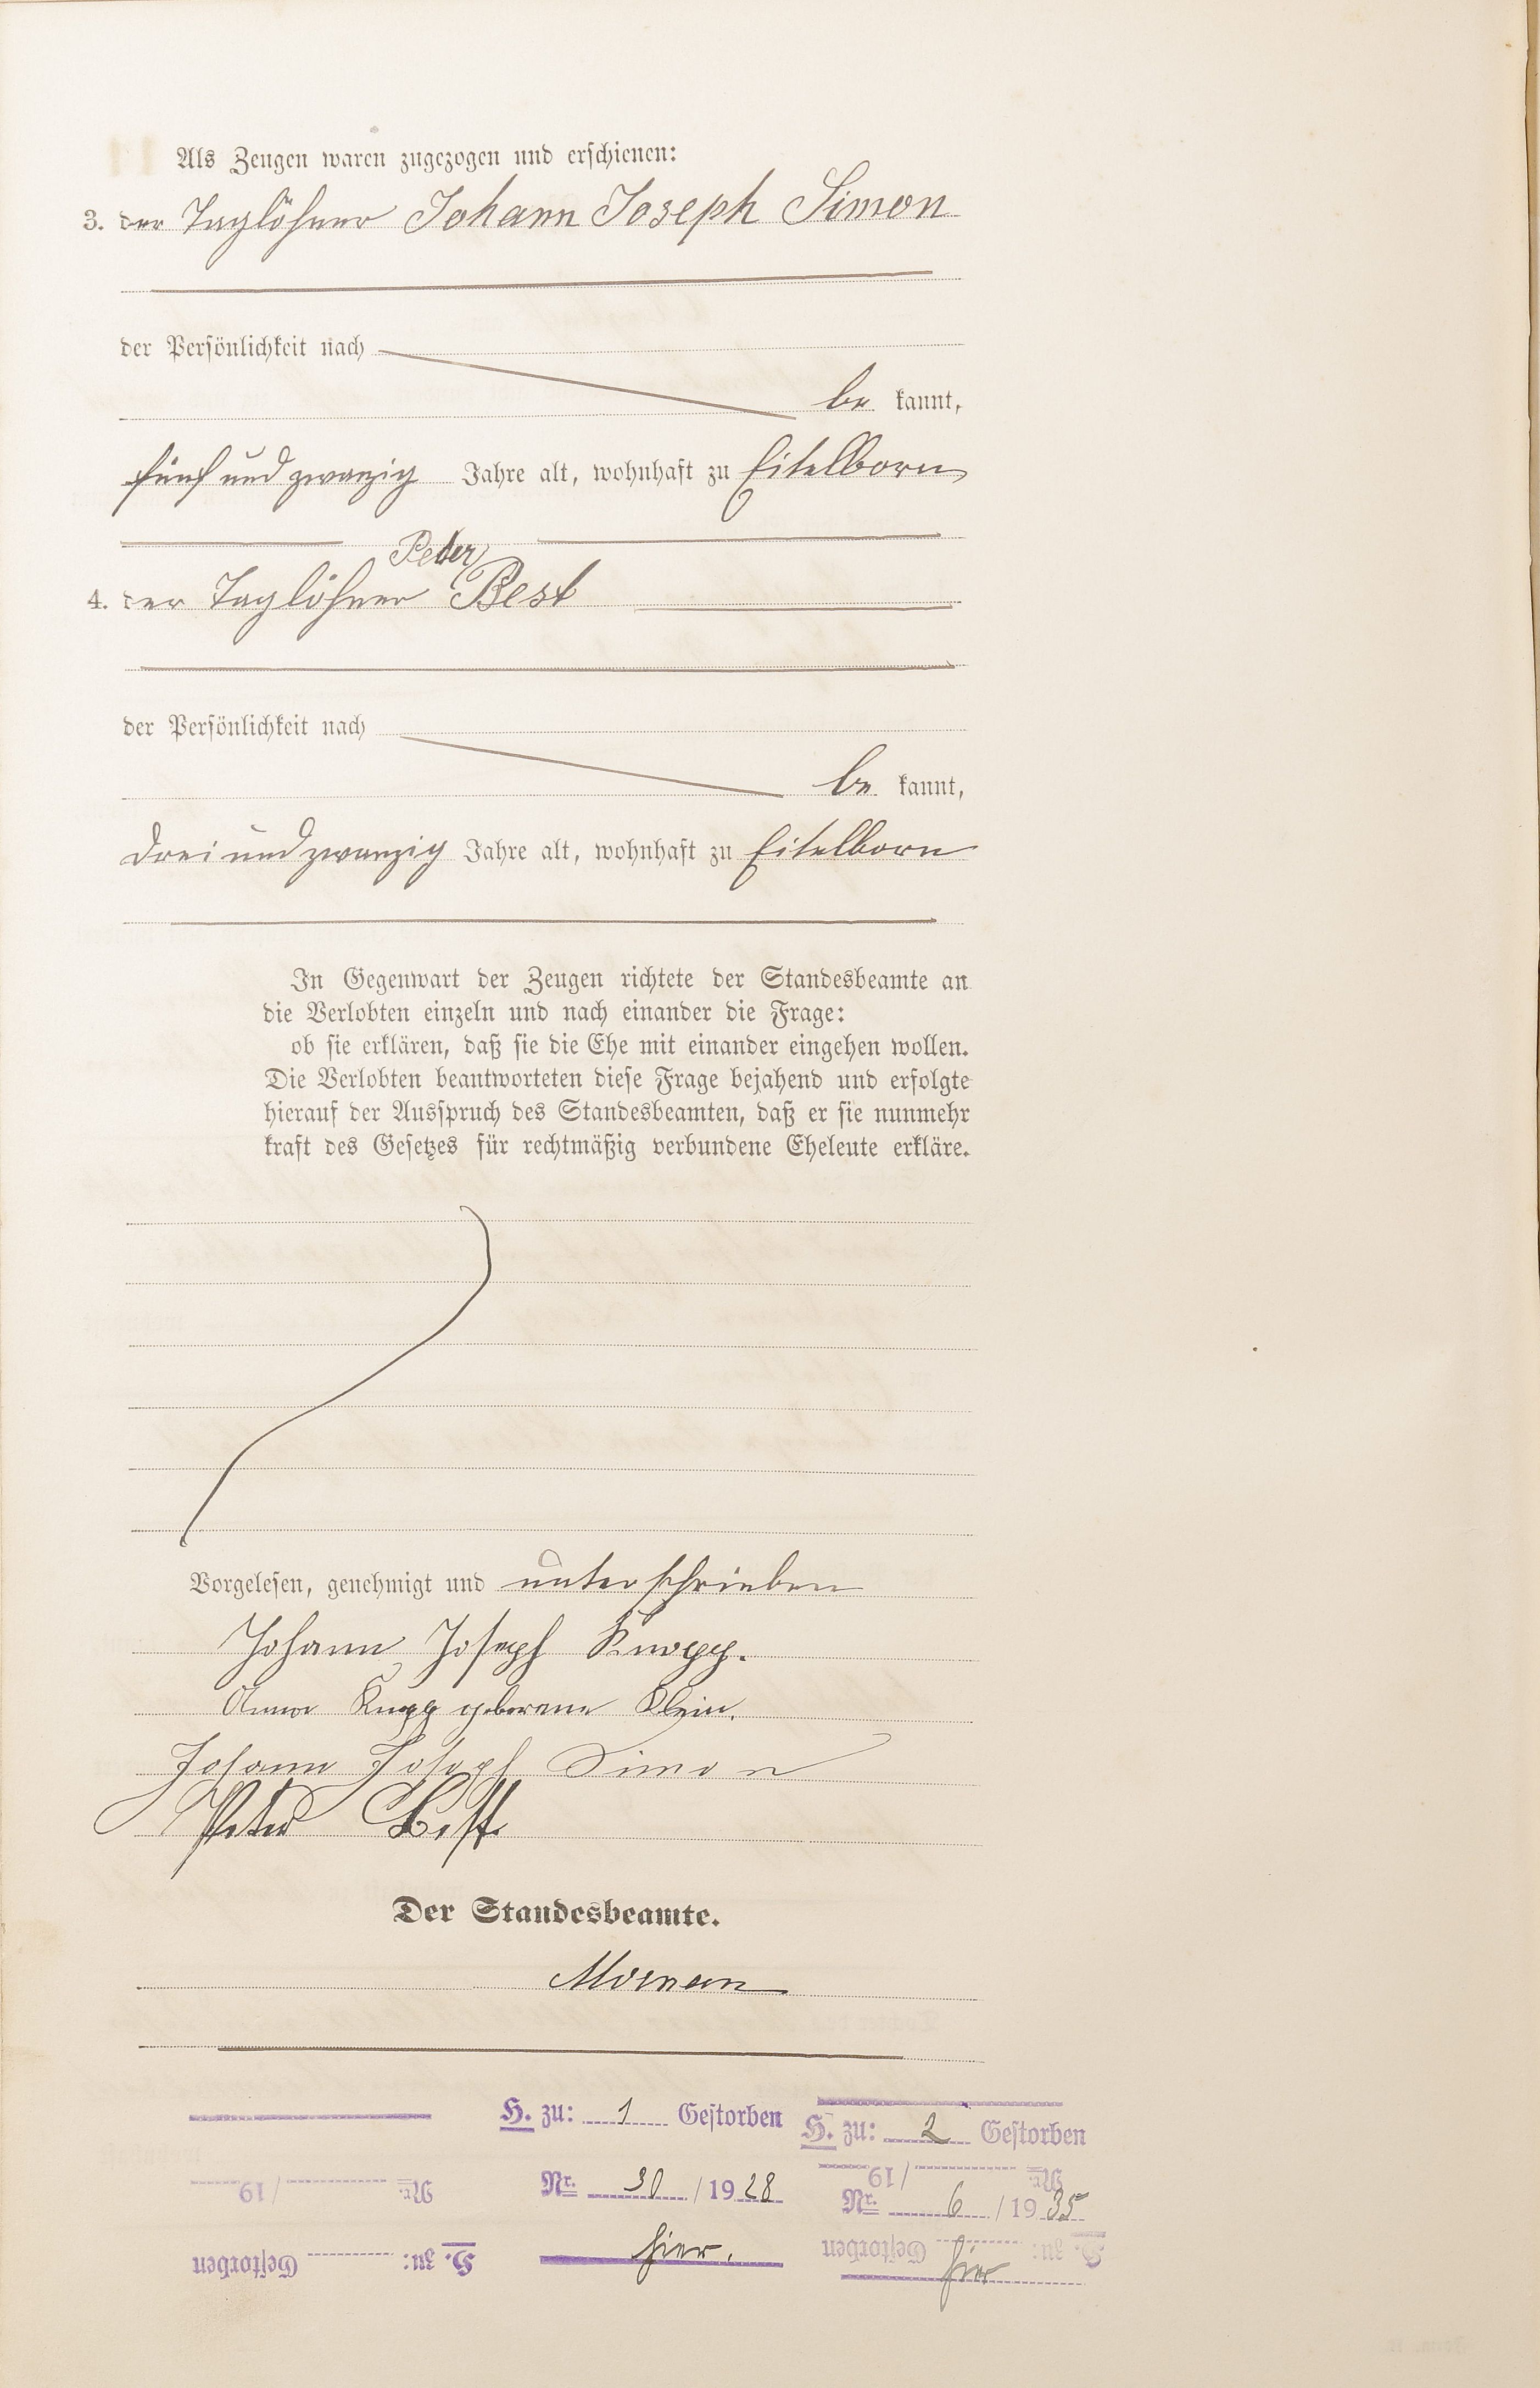 Als Zeugen waren zugezogen und erschienen:
3. der Taglöhner Johann Joseph Simon
der Persönlichkeit nach
be kannt,
fünf und zwanzig Jahre alt, wohnhaft zu Eitelborn
Peter
4. der Taglöhner Best
der Persönlichkeit nach
be kannt,
drei und zwanzig Jahre alt, wohnhaft zu Eitelborn
In Gegenwart der Zeugen richtete der Standesbeamte an
die Verlobten einzeln und nach einander die Frage:
ob sie erklären, daß sie die Ehe mit einander eingehen wollen.
Die Verlobten beantworteten diese Frage bejahend und erfolgte
hierauf der Ausspruch des Standesbeamten, daß er sie nunmehr
kraft des Gesetzes für rechtmäßig verbundene Eheleute erkläre.
Vorgelesen, genehmigt und unterschrieben
Johann Joseph Knopp.
Anna Knopp geborene Klein.
Johann Joseph Simon
Peter Best
Der Standesbeamte.
H. zu: 1 Gestorben
Nr. 30 / 19 28
hier.
H. zu: 2 Gestorben
Nr. 6 / 19 35
hier
H. zu: Gestorben
Nr. / 19
H. zu: Gestorben
Nr. / 19